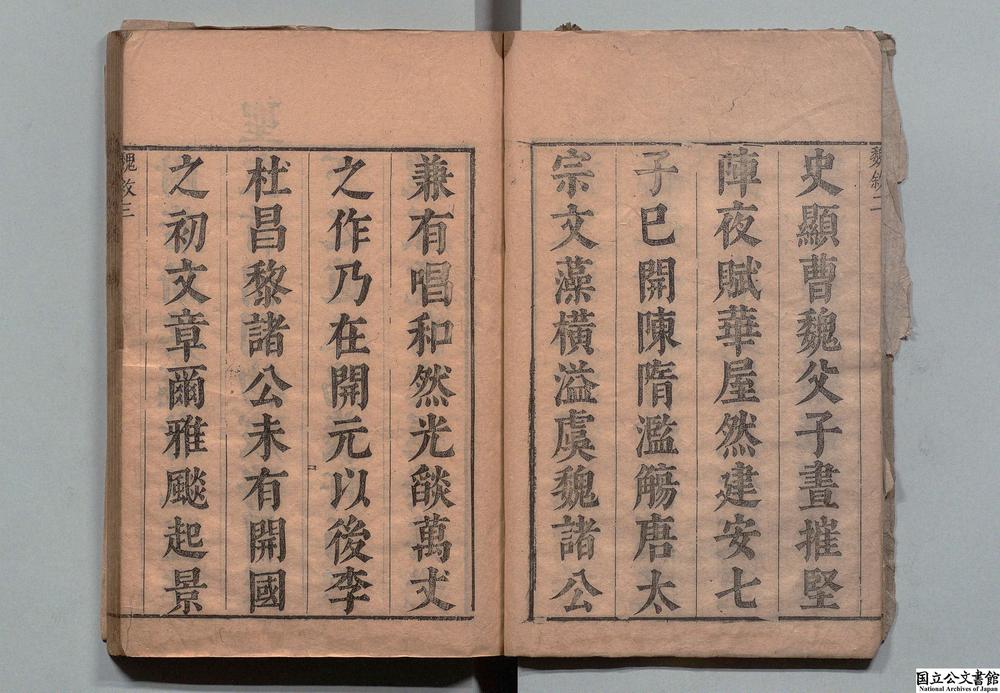 魏敘二
史顯曹魏父子晝摧堅
陣夜賦華屋然建安七
子已開陳隋濫觴唐太
宗文藻橫溢虞魏諸公
兼有唱和然光燄萬丈
之作乃在開元以後李
杜昌黎諸公未有開國
之初文章爾雅飈起景
魏敘三
国立公文書館
National Archives of Japan